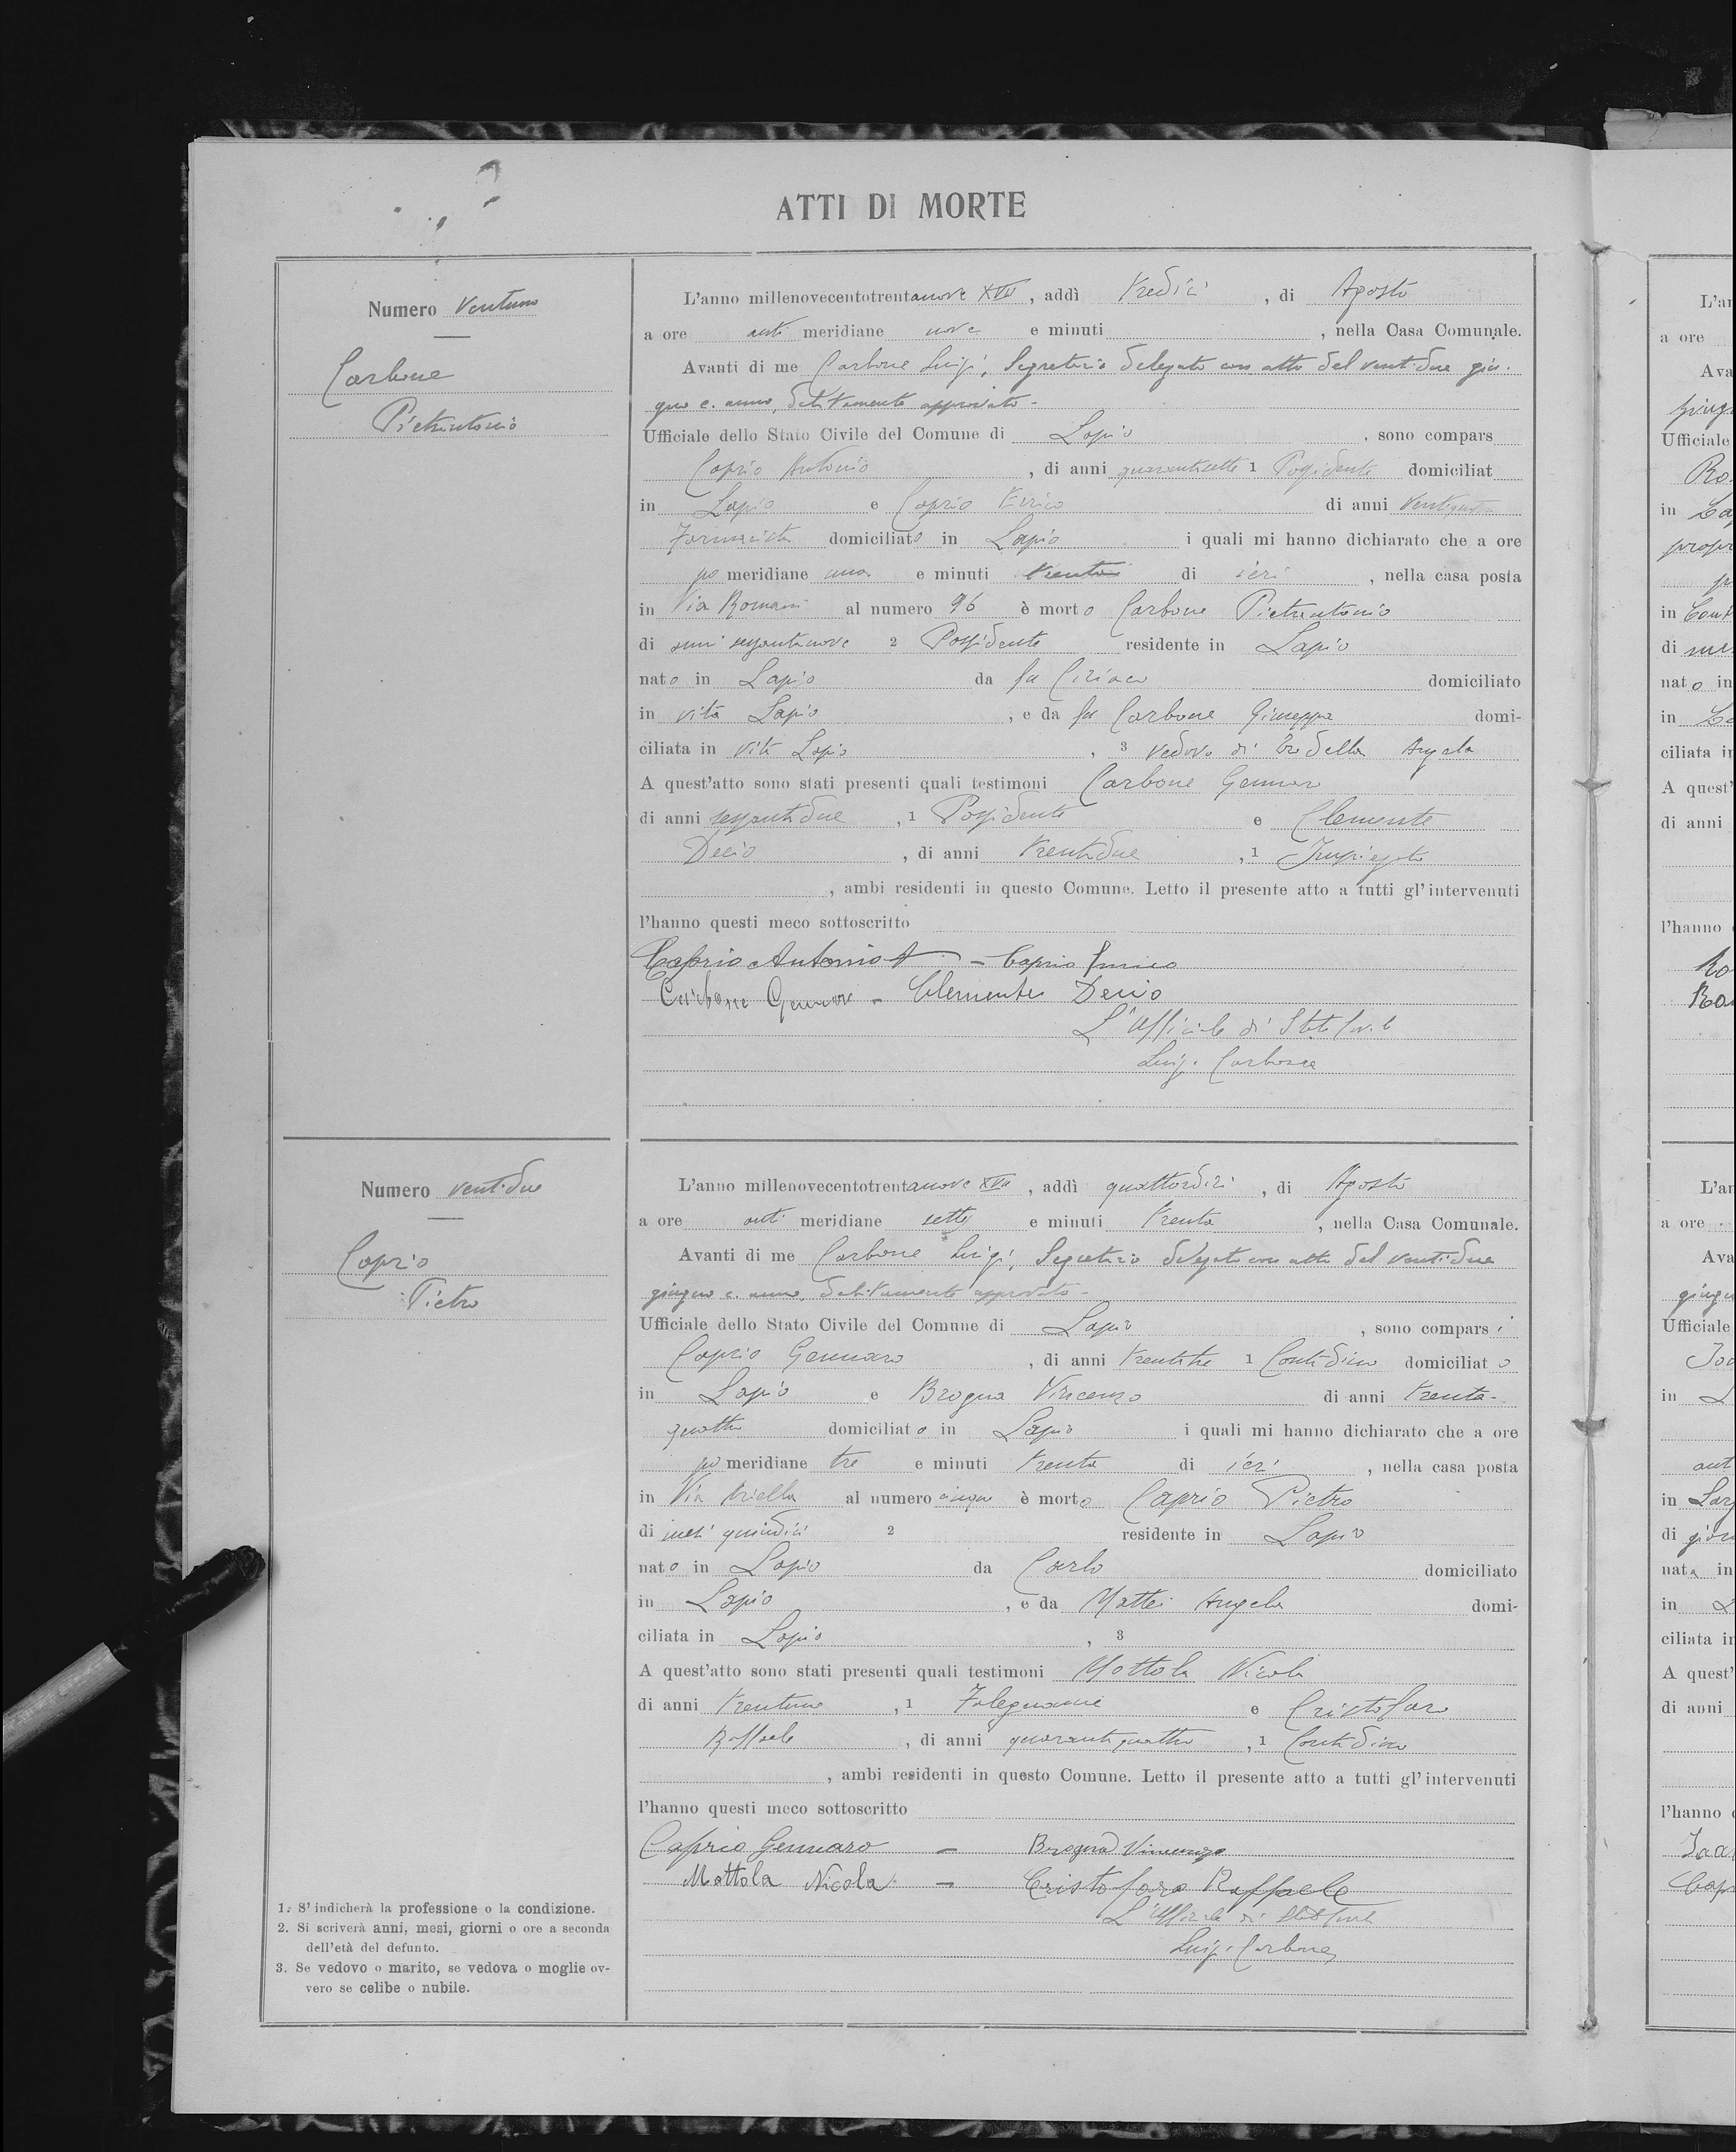 ATTI DI MORTE
Numero Ventuno
Carbone
Pietrantonio
L'anno millenovecentotrentanove XVII, addì tredici, di Agosto
a ore anti meridiane nove e minuti , nella Casa Comunale.
Avanti di me Carbone Luigi, Segretario delegato con atto del ventidue giu-
gno c. anno, debitamente approvato-
Ufficiale dello Stato Civile del Comune di Lapio , sono compars
Caprio Antonio , di anni quarantasette 1 Possidente domiciliat
in Lapio e Caprio Errico di anni
Farmacista domiciliato in Lapio i quali mi hanno dichiarato che a ore
po meridiane una e minuti trenta di ieri , nella casa posta
in Via Romani al numero 96 è morto Carbone Pietrantonio
di anni sessantanove 2 Possidente residente in Lapio
nato in Lapio da fu Ciriaco domiciliato
in vita Lapio , e da fu Carbone Giuseppa domi-
ciliata in vita Lapio , 3 vedovo di Angela
A quest'atto sono stati presenti quali testimoni Carbone Gennaro
di anni sessantadue , 1 Possidente e Clemente
Decio , di anni trentadue , 1 Impiegato
, ambi residenti in questo Comune. Letto il presente atto a tutti gl'intervenuti
l'hanno questi meco sottoscritto
Caprio Antonio - Caprio Enrico
Carbone Gennaro - Clemente Decio
L'Ufficiale di Stato Civile
Luigi Carbone
Numero ventidue
Caprio
Pietro
L'anno millenovecentotrentanove XVII , addì quattordici , di Agosto
a ore anti meridiane sette e minuti trenta , nella Casa Comunale.
Avanti di me Carbone Luigi, Segretario delegato con atto del ventidue
giugno c. anno, debitamente approvato-
Ufficiale dello Stato Civile del Comune di Lapio , sono comparsi
Caprio Gennaro , di anni trentatre 1 Contadino domiciliato
in Lapio e Brogna Vincenzo di anni trenta-
quattro domiciliato in Lapio i quali mi hanno dichiarato che a ore
po meridiane tre e minuti trenta di ieri , nella casa posta
in Via al numero cinque è morto Caprio Pietro
di mesi quindici 2 residente in Lapio
nato in Lapio da Carlo domiciliato
in Lapio , e da Mattei Angela domi-
ciliata in Lapio , 3
A quest'atto sono stati presenti quali testimoni Mottola Nicola
di anni trentuno , 1 Falegname e Cristofaro
Raffaele , di anni quarantaquattro , 1 Contadino
, ambi residenti in questo Comune. Letto il presente atto a tutti gl'intervenuti
l'hanno questi meco sottoscritto
Caprio Gennaro - Brogna Vincenzo
Mottola Nicola - Cristofaro Raffaele
L'Ufficiale di Stato Civile
Luigi Carbone
1. S'indicherà la professione o la condizione.
2. Si scriverà anni, mesi, giorni o ore a seconda
dell'età del defunto.
3. Se vedovo o marito, se vedova o moglie ov-
vero se celibe o nubile.